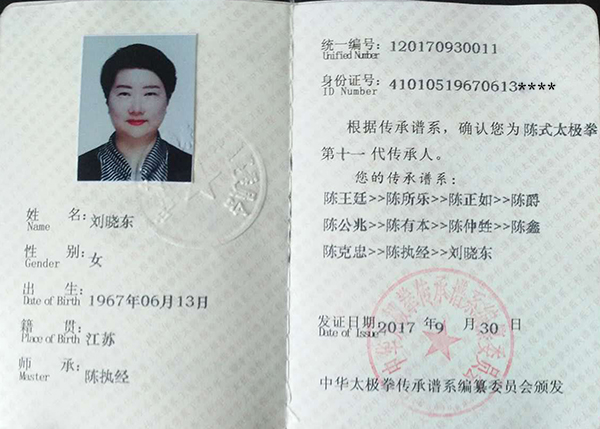 姓 名: 刘晓东
Name
性 别: 女
Gender
出 生: 1967年06月13日
Date of Birth
籍 贯: 江苏
Place of Birth
师 承: 陈执经
Master
统一编号: 120170930011
Unified Number
身份证号: 41010519670613****
ID Number
根据传承谱系，确认您为陈式太极拳
第十一代传承人。
您的传承谱系:
陈王廷>>陈所乐>>陈正如>>陈爵
陈公兆>>陈有本>>陈仲甡>>陈鑫
陈克忠>>陈执经>>刘晓东
发证日期: 2017 年 9 月 30 日
Date of Issue
中华太极拳传承谱系编纂委员会
中华太极拳传承谱系编纂委员会颁发